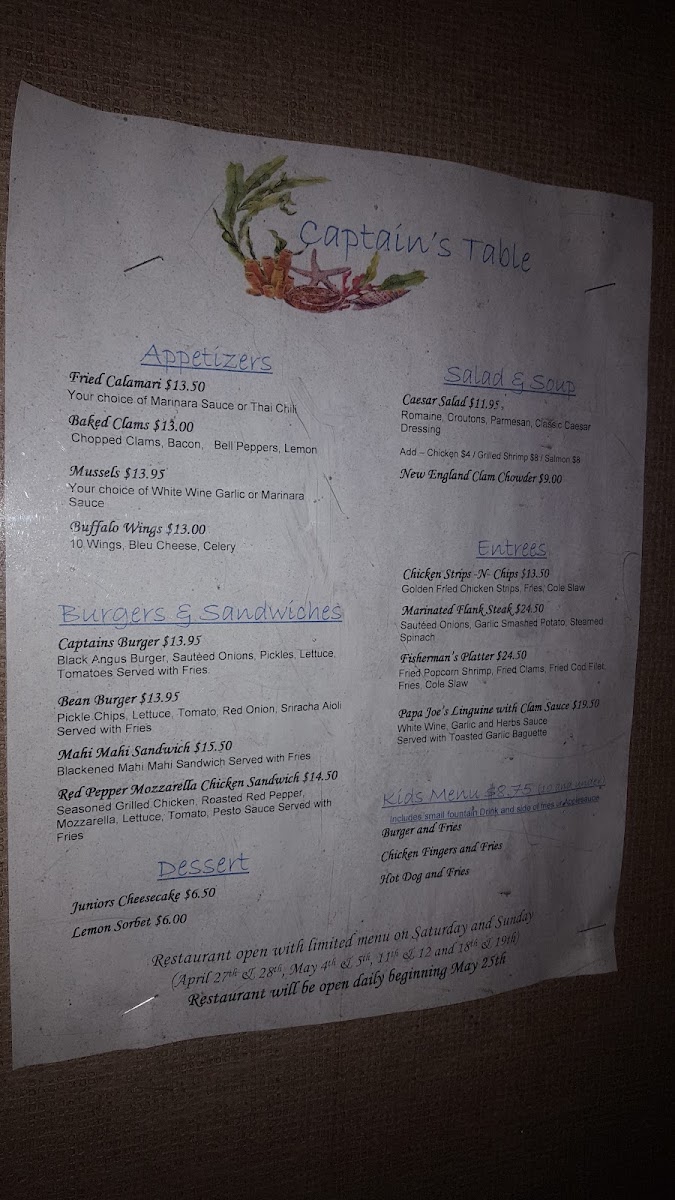 Captain's Table
Appetizers
Fried Calamari $13.50
Your choice of Marinara Sauce or Thai Chili
Baked Clams $13.00
Chopped Clams, Bacon, Bell Peppers, Lemon
Mussels $13.95
Your choice of White Wine Garlic or Marinara
Sauce
Buffalo Wings $13.00
10 Wings, Bleu Cheese, Celery
Burgers & Sandwiches
Captains Burger $13.95
Black Angus Burger, Sautéed Onions, Pickles, Lettuce,
Tomatoes Served with Fries
Bean Burger $13.95
Pickle Chips, Lettuce, Tomato, Red Onion, Sriracha Aioli
Served with Fries
Mahi Mahi Sandwich $15.50
Blackened Mahi Mahi Sandwich Served with Fries
Red Pepper Mozzarella Chicken Sandwich $14.50
Seasoned Grilled Chicken, Roasted Red Pepper,
Mozzarella, Lettuce, Tomato, Pesto Sauce Served with
Fries
Dessert
Juniors Cheesecake $6.50
Lemon Sorbet $6.00
Salad & Soup
Caesar Salad $11.95
Romaine, Croutons, Parmesan, Classic Caesar
Dressing
Add – Chicken $4 / Grilled Shrimp $8 / Salmon $8
New England Clam Chowder $9.00
Entrees
Chicken Strips -N- Chips $13.50
Golden Fried Chicken Strips, Fries, Cole Slaw
Marinated Flank Steak $24.50
Sautéed Onions, Garlic Smashed Potato, Steamed
Spinach
Fisherman's Platter $24.50
Fried Popcorn Shrimp, Fried Clams, Fried Cod Filet,
Fries, Cole Slaw
Papa Joe's Linguine with Clam Sauce $19.50
White Wine, Garlic and Herbs Sauce
Served with Toasted Garlic Baguette
Kids Menu $8.75 (10 and under)
Includes small fountain Drink and side of fries or Applesauce
Burger and Fries
Chicken Fingers and Fries
Hot Dog and Fries
Restaurant open with limited menu on Saturday and Sunday
(April 27th & 28th, May 4th & 5th, 11th & 12 and 18th & 19th)
Restaurant will be open daily beginning May 25th